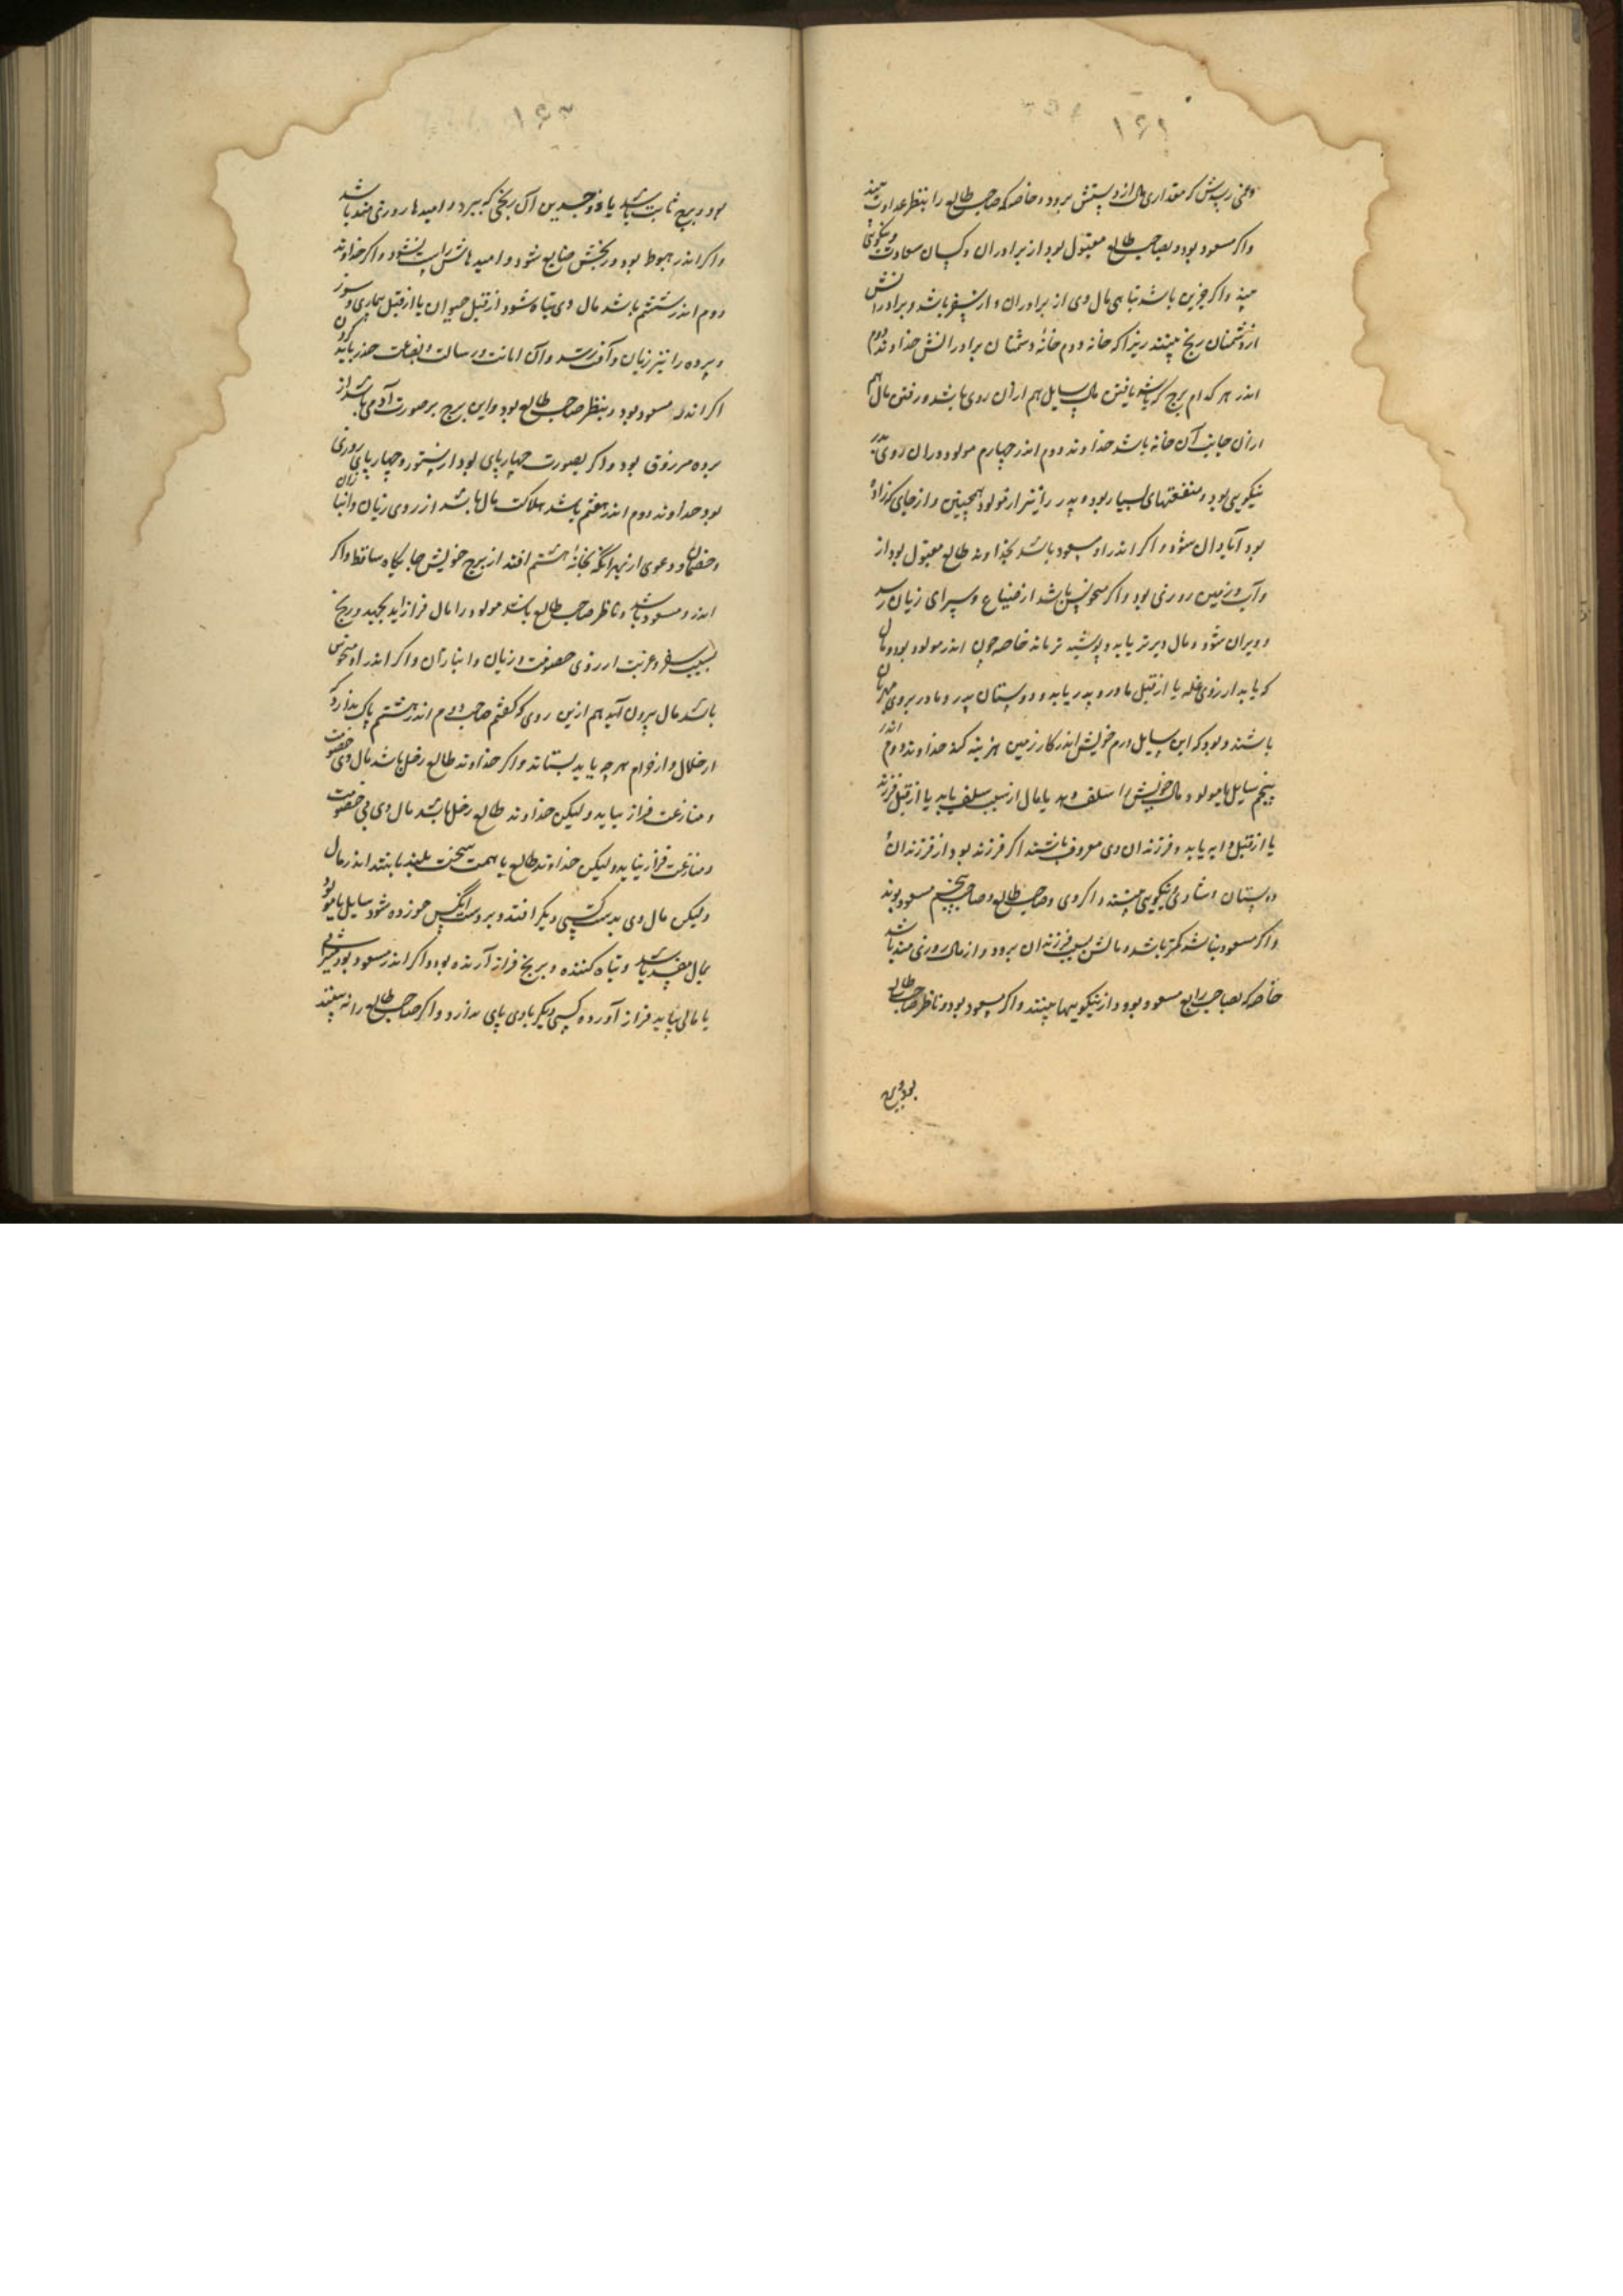 ۱۶۲
که مقداری مال از دستش برود و خاصه که صاحب طالع را بنظر عداوت بیند
واکر مسعود بود و بصاحب طالع مقبول بود از برادران و کسان سعادت و نیکوئی
بیند واکر جزین باشد تباهی مال وی از برادران و از سفر باشد و برادرانش
از دشمنان رنج بینند زیرا که خانه دوم خانهٔ دشمنان برادرانش خداوند دوم
اندر هر کدام برج که باشد یافتن مال سایل هم ازان روی باشد و رفتن مال هم
ازان جانب آن خانه باشد خداوند دوم اندر چهارم مولود دران روی پدر
نیکویی بود و منفعتهای بسیار بود و پدر را نیز از مولود همچنین و از جای که زاده
بود آبادان شود و اکر اندر او مسعود باشد بخداوند طالع مقبول بود از
وآب و زمین روزی بود واکر منحوس باشد از ضیاع و سرای زیان رسد
و ویران شود و مال دیرتر یابد و پوشیده تر ماند خاصه چون اندر مولود بود و مال
که یابد از روی غله یا از قبل مادر و پدر یابد و دوستان پدر و مادر بروی مهربان
باشند و بود که این سایل درم خویش اندر کار زمین هزینه کند خداوند دوم اندر
پنجم سایل یا مولود مال خویش را سلف دهد یا مال از سبب سلف یابد یا از قبل فرزند
یا از قبل دایه یابد و فرزندان وی معروف باشند اکر فرزند بود از فرزندان
دوستان و شادی نیکویی بیند و اکر وی و صاحب طالع و صاحب پنجم مسعود بوند
و اکر مسعود نباشد کمتر باشد و مالش بسبب فرزندان برود و از مال روزی مند باشد
خاصه که بصاحب رابع مسعود بود و از نیکوییها بینند و اکر مسعود بود و ناظر صاحب طالع
بود و برج
۱۶۳
بود و برج ثابت باشد یا ذو جسدین آن رنجی که ببرد و امیدها روزی مند باشد
و اکر اندر هبوط بود و رنجش ضایع شود و امیدهاش راست نشود و اکر خداوند
دوم اندر ششم باشد مال وی تباه شود از قبل حیوان یا از قبل بیماری و ستور
و برده را نیز زیان و آفت رسد و آن امانت و رسالت و بضاعت حذر باید کردن
اکر اندر مسعود بود و بنظر صاحب طالع بود و این برج بر صورت آدمی باشد از
برده مرزوق بود و اکر بصورت چهارپای بود از ستور و چهارپای روزی
بود خداوند دوم اندر هفتم باشد هلاکت مال باشد از روی زنان و انبازان
و خصمان و دعوی از بهر آنکه بخانهٔ هشتم افتد از برج خویش جایکاه ساقط و اکر
اندر و مسعود باشد و ناظر صاحب طالع باشد مولود را مال فراز آید بجهد و رنج
بسبب سفر و غربت از روی خصومت و زنان و انبازان و اکر اندر او منحوس
باشد مال بیرون آید هم ازین روی که کفتم صاحب دوم اندر هشتم باک ندارد
از حلال و از حرام هر چه یابد بستاند و اکر خداوند طالع زحل باشد مال وی خصومت
و منازعت فراز بیاید و لیکن خداوند طالع زحل باشد مال وی بی خصومت
و منازعت فراز نیاید و لیکن خداوند طالع یا همت سخت بلند باشد اندر مال
و لیکن مال وی بدست کسی دیکر افتد و بر دست آنکس خورده شود سایل یا مولود
بمال مفسد باشد و تباه کننده و برنج فراز آرنده بود و اکر اندر مسعود بود میراثی
یا مالی بیابد فراز آورده کسی دیکر با وی پای ندارد و اکر صاحب طالع را نه بیند